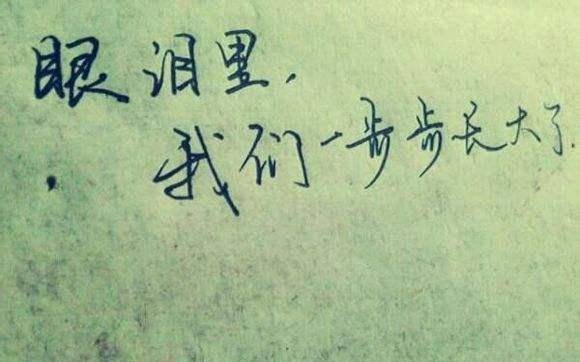 眼泪里,
我们一步步长大了.